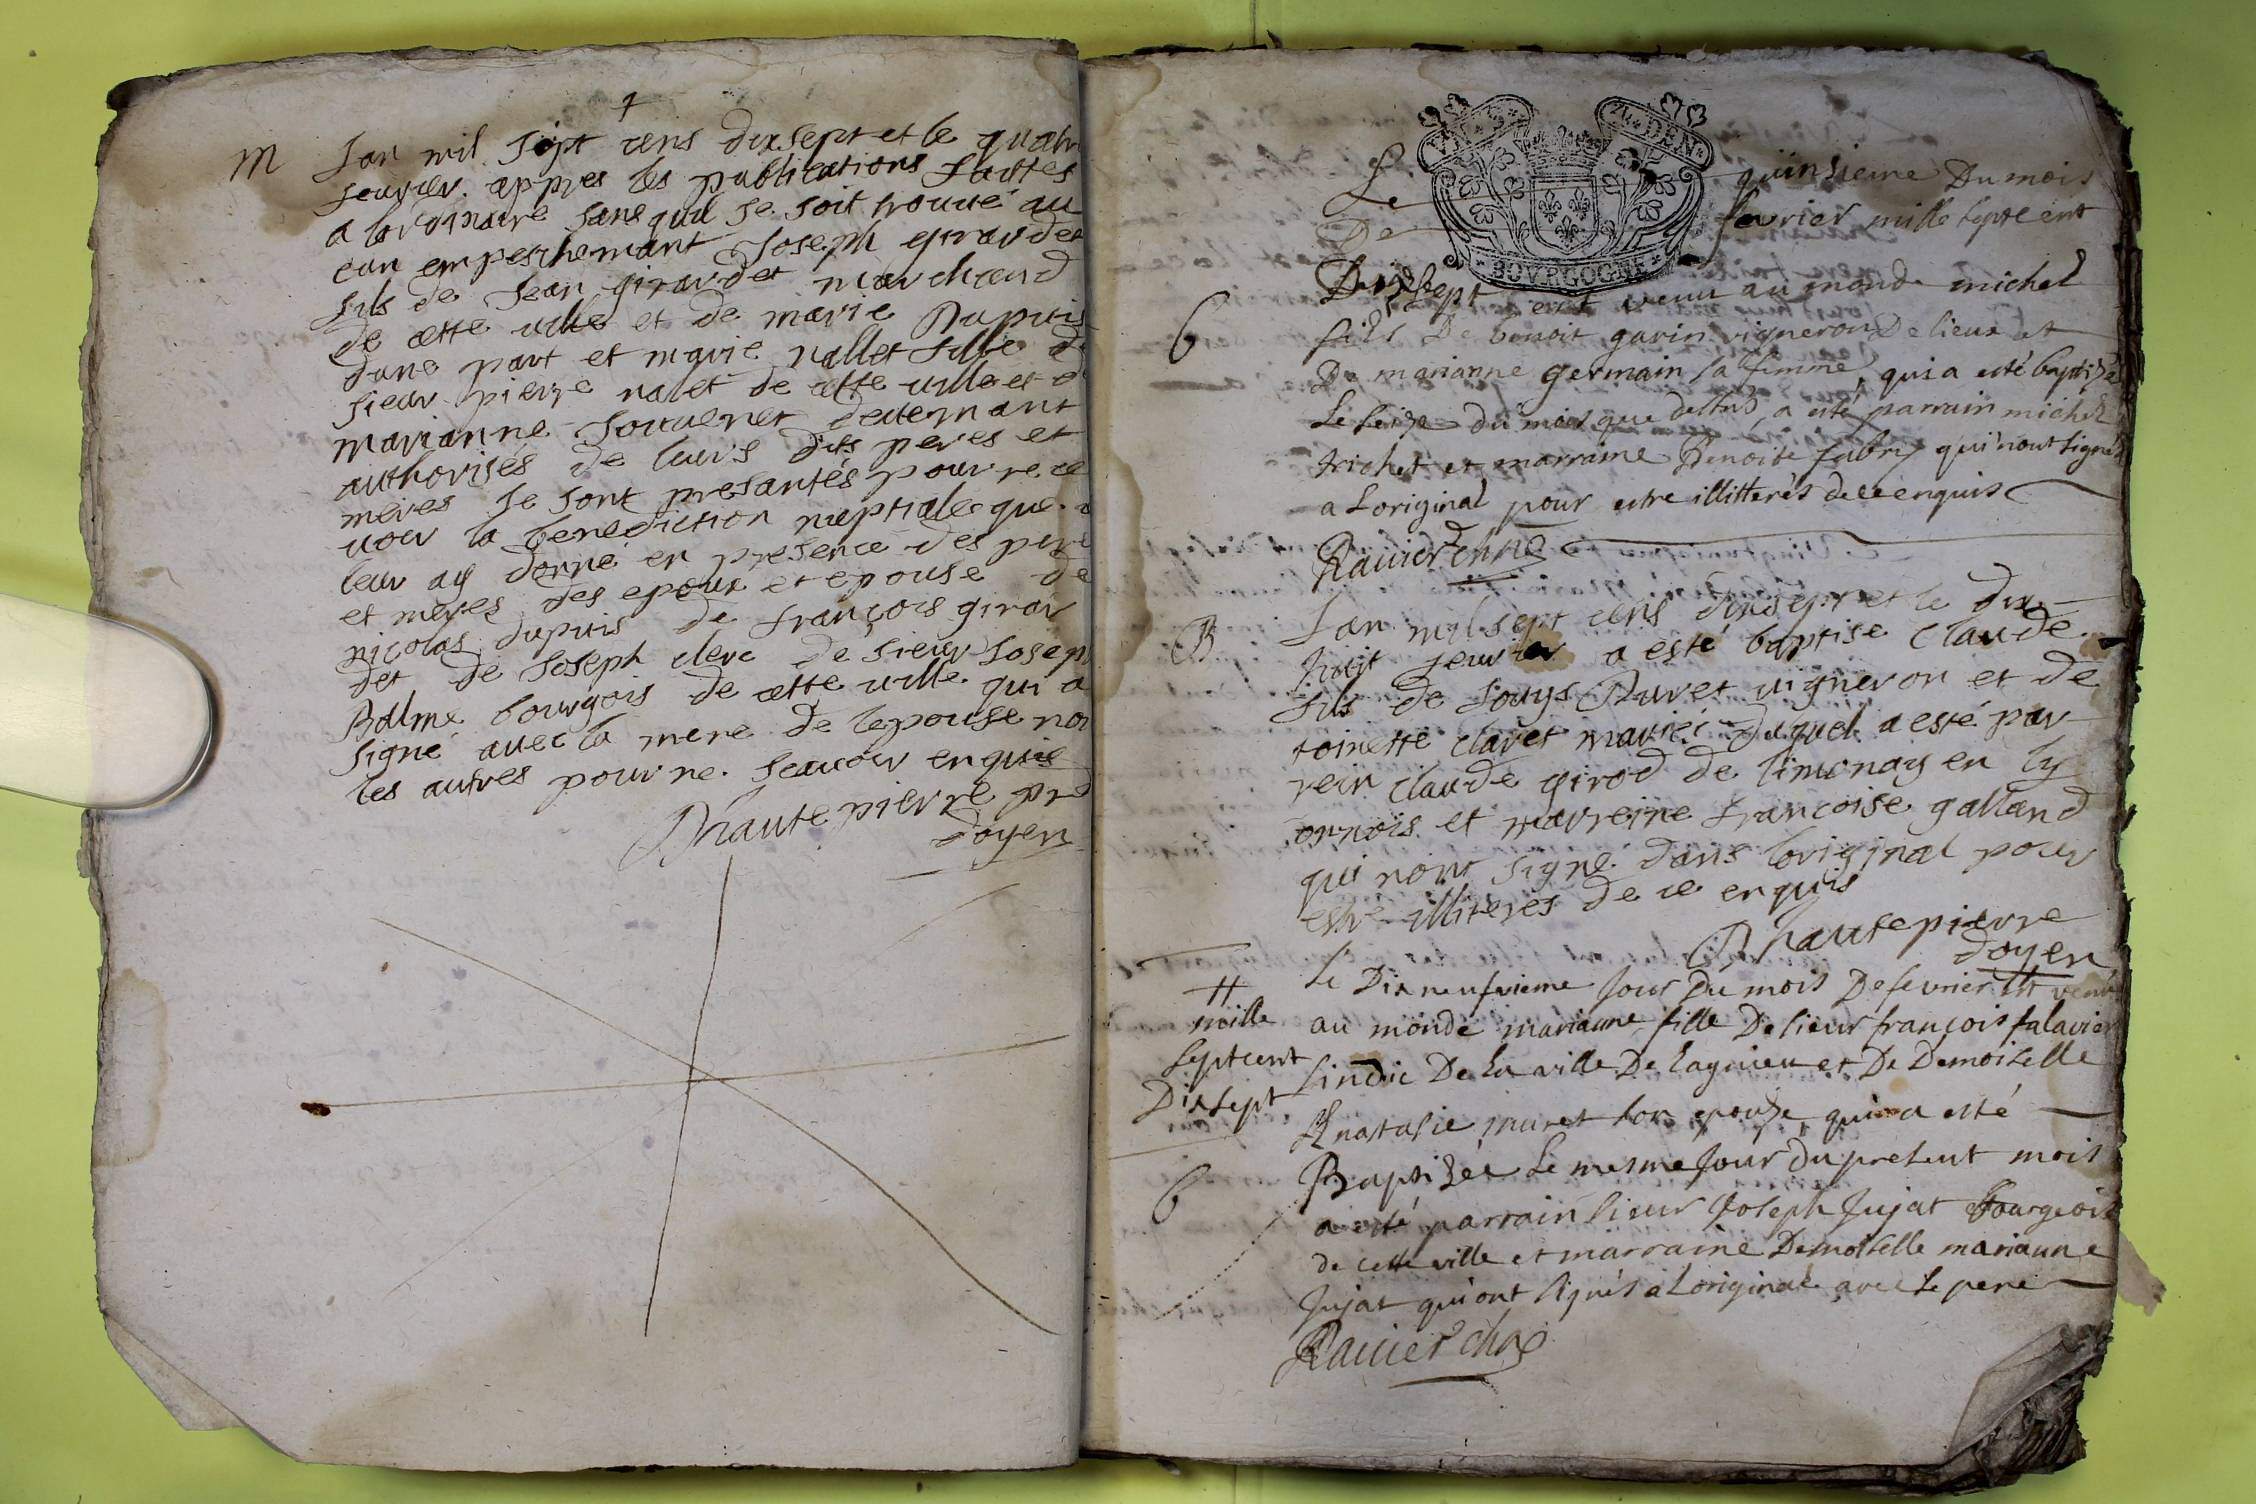 +
M
Lan mil sept cens dixsept et le quatr
feuvrier appres les publications faictes
a lordinaire sans quil se soit trouué au
cun empeschemant Joseph girardet
fils de Jean girardet marchand
de cette ville et de marie Dupuis
dune part et marie nallet fille de
sieur pierre nalet de cette ville et de
marianne deuemant
authorisés de leurs dits peres et
meres se sont presantés pour rece
uoir la benediction nuptiale que
leur ay donné en presence des pere
et meres des epoux et epouse de
nicolas dupuis de françois girar
det de Joseph clerc de sieur Joseph
Balme bourgois de cette ville qui a
signé auec la mere de lepouse non
les autres pour ne scauoir enquis
Dhautepierre pr
doyen
VN 2u DEN
BOVRGOGNE
Le quinsieme Du mois
De fevrier mille sept cent
Dixsept est venu au monde michel
b
fils De benoit gavin vigneron De lieux et
De marianne germain sa femme qui a esté baptizé
Le seize du mois que dessus a esté parrain michel
trichet et marraine Benoite fabry qui nont signés
a Loriginal pour estre illitterés de ce enquis
Ravier
B
Lan mil sept cens dixsept et le dix
huit feuvrier a esté baptise Claude
fils de Louys Duret vigneron et de
toinette claret mariés duquel a esté par
rein claude girod de limonay en ly
onnois et marreine françoise galland
qui nont signé dans loriginal pour
estre illiteres de ce enquis
Dhautepierre
doyen
H
mille
sept cent
Dixsept
Le Dix neufvieme Jour Du mois De fevrier est venu
au monde marianne fille De sieur françois falavier
sindic De la ville De Lagnieu et De Demoiselle
Anastasie muret son epouse qui a esté
b
Baptizée Le mesme Jour du present mois
a esté parrain sieur Joseph Jujat bourgeois
de cette ville et marraine Demoiselle marianne
Jujat qui ont signés a Loriginal avec le pere
Ravier